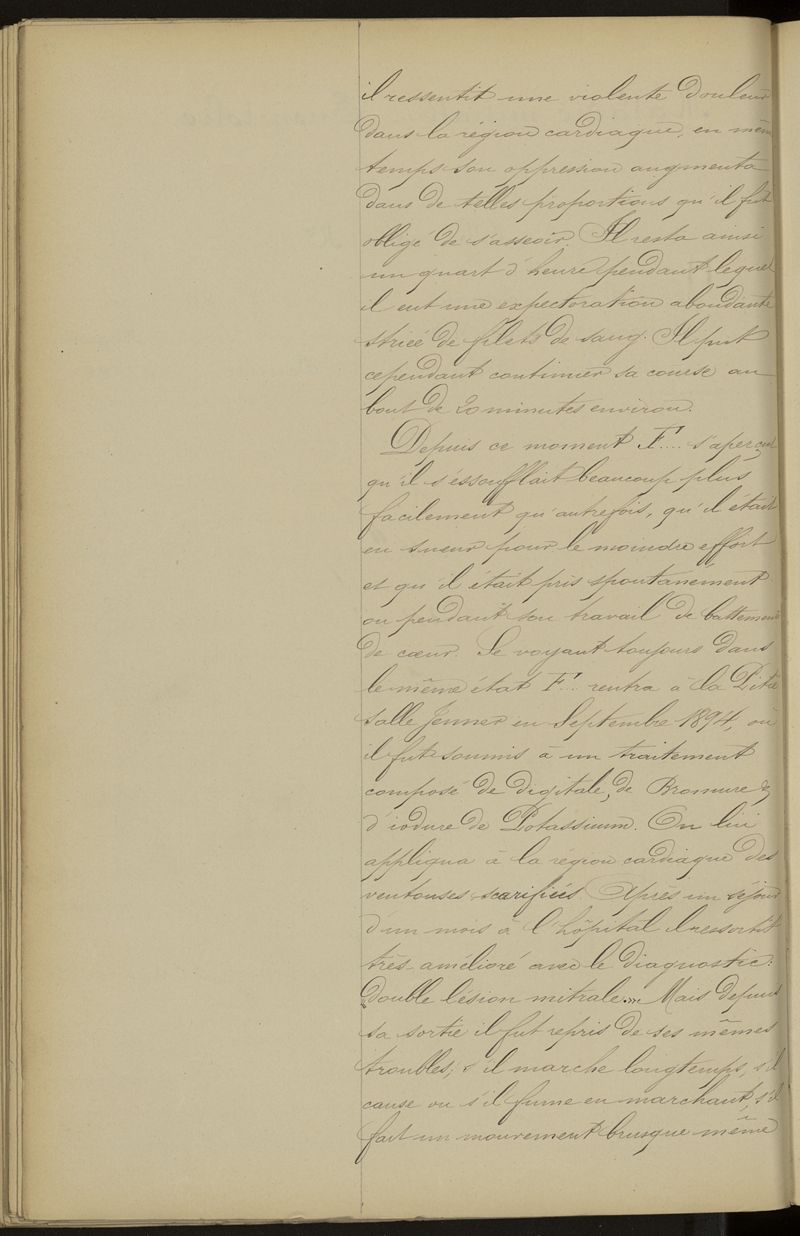 il ressentit une violente douleur
dans la région cardiaque, en même
temps son oppression augmenta
dans de telles proportions qu'il fut
obligé de s'asseoir. Il resta ainsi
un quart d'heure pendant lequel
il eut une expectoration abondante
striée de filets de sang. Il put
cependant continuer sa course au
bout de 20 minutes environ.
Depuis ce moment F.... s'aperçut
qu'il s'éssoufflait beaucoup plus
facilement qu'autrefois, qu'il était
en sueur pour le moindre effort
et qu'il était pris spontanément
ou pendant son travail de battements
de cœur. Se voyant toujours dans
le même état F... rentra à la Pitié
salle Jenner en Septembre 1894, où
il fut soumis à un traitement
composé de digitale, de Bromure &
d'iodure de Potassium. On lui
appliqua à la région cardiaque des
ventouses scarifiées. Après un séjour
d'un mois à l'hôpital il ressortit
très amélioré avec le diagnostic:
"double lésion mitrale". Mais depuis
sa sortie il fut repris de ses mêmes
troubles; s'il marche longtemps, s'il
cause ou s'il fume en marchant, s'il
fait un mouvement brusque même